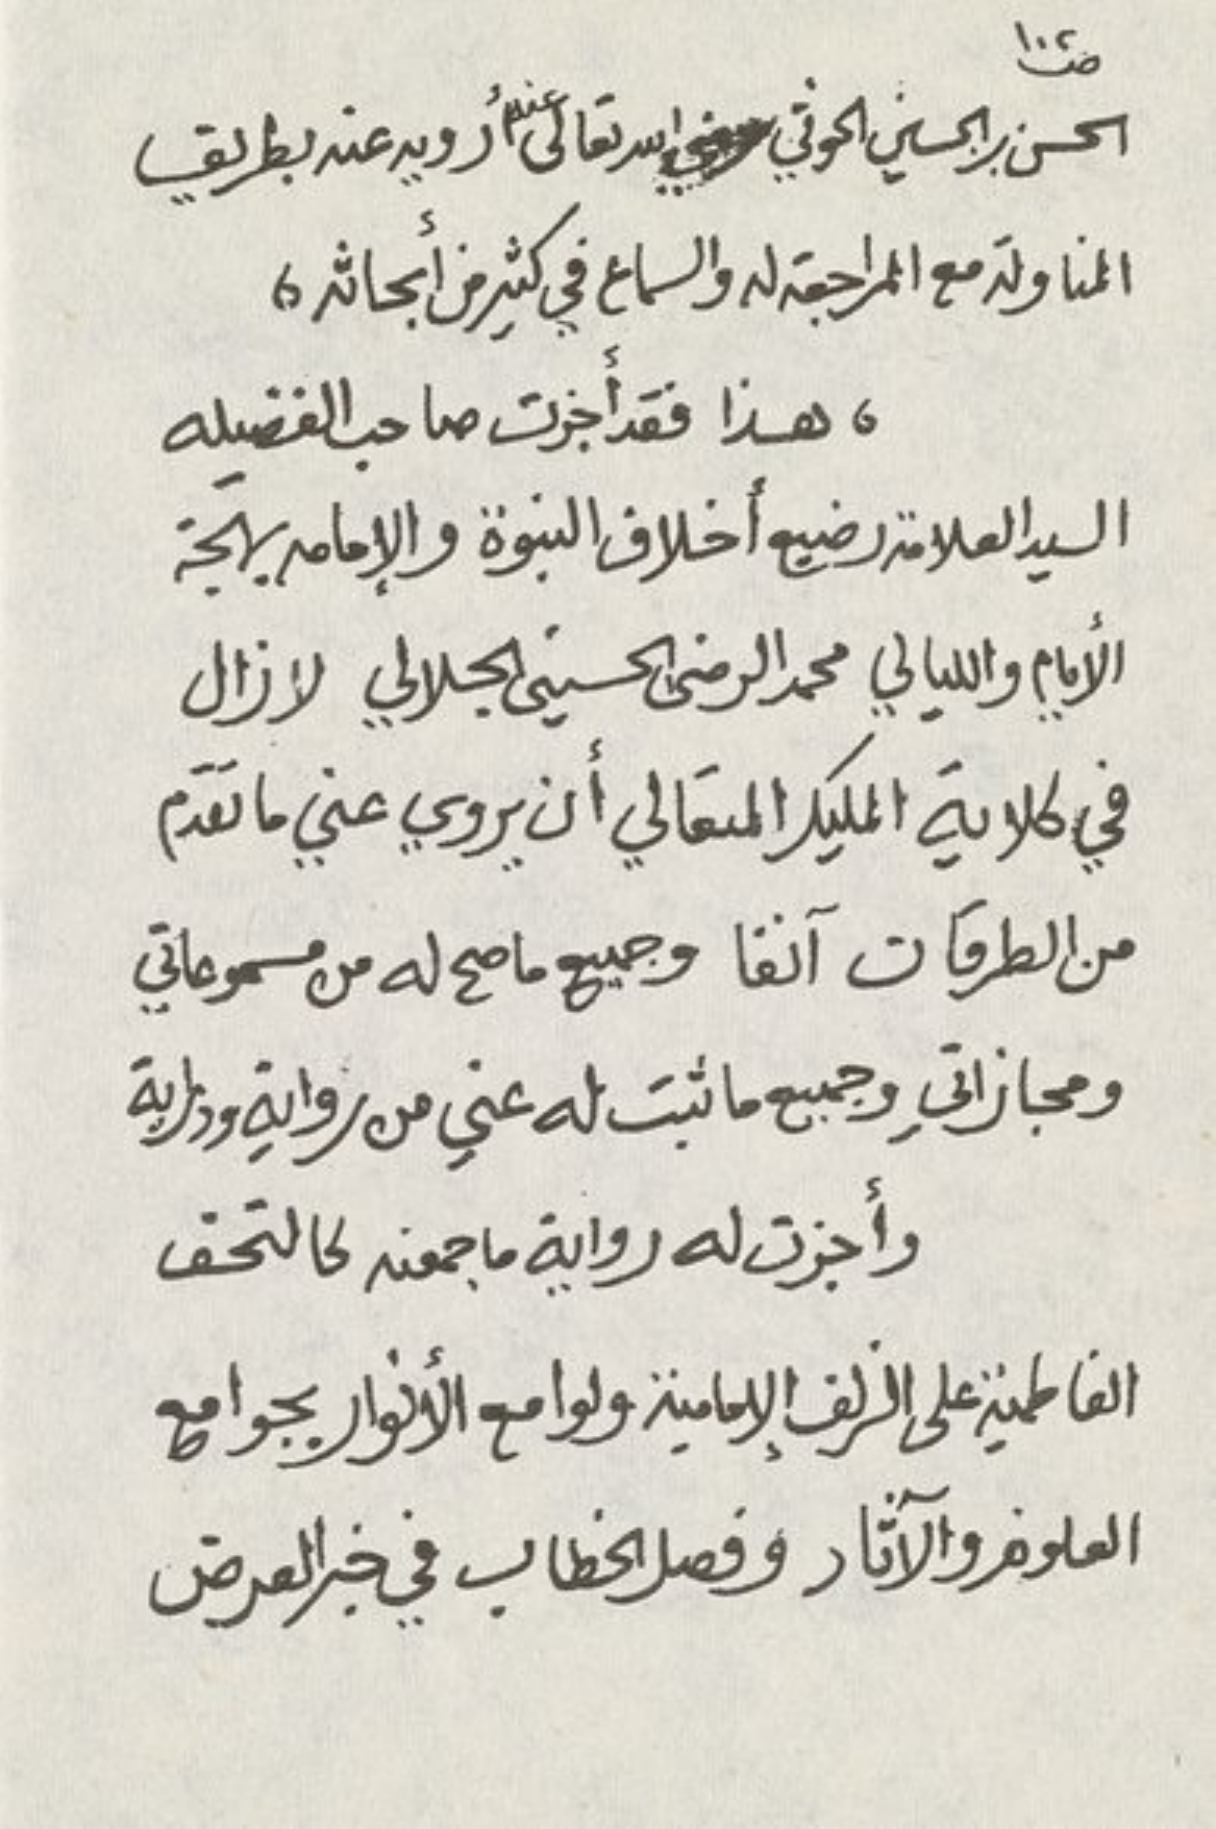 ص ١٠٢
الحسن بن الحسين الحوثي رضي الله تعالى عنهم أرويه عنه بطريق
المناولة مع المراجعة له والسماع في كثير من أبحاثه ،
، هذا فقد أجزت صاحب الفضيله
السيد العلامة رضيع أخلاف النبوة والإمامه بهجة
الأيام والليالي محمد الرضى الحسيني الجلالي لا زال
في كلاية المليك المتعالي أن يروي عني ما تقدم
من الطرقات آنفا وجميع ما صح له من مسموعاتي
ومجازاتي وجميع ما ثبت له عني من رواية ودراية
وأجزت له رواية ما جمعته كالتحف
الفاطمية على الزلف الإمامية ولوامع الأنوار بجوامع
العلوم والآثار وفصل الخطاب في خبر العرض